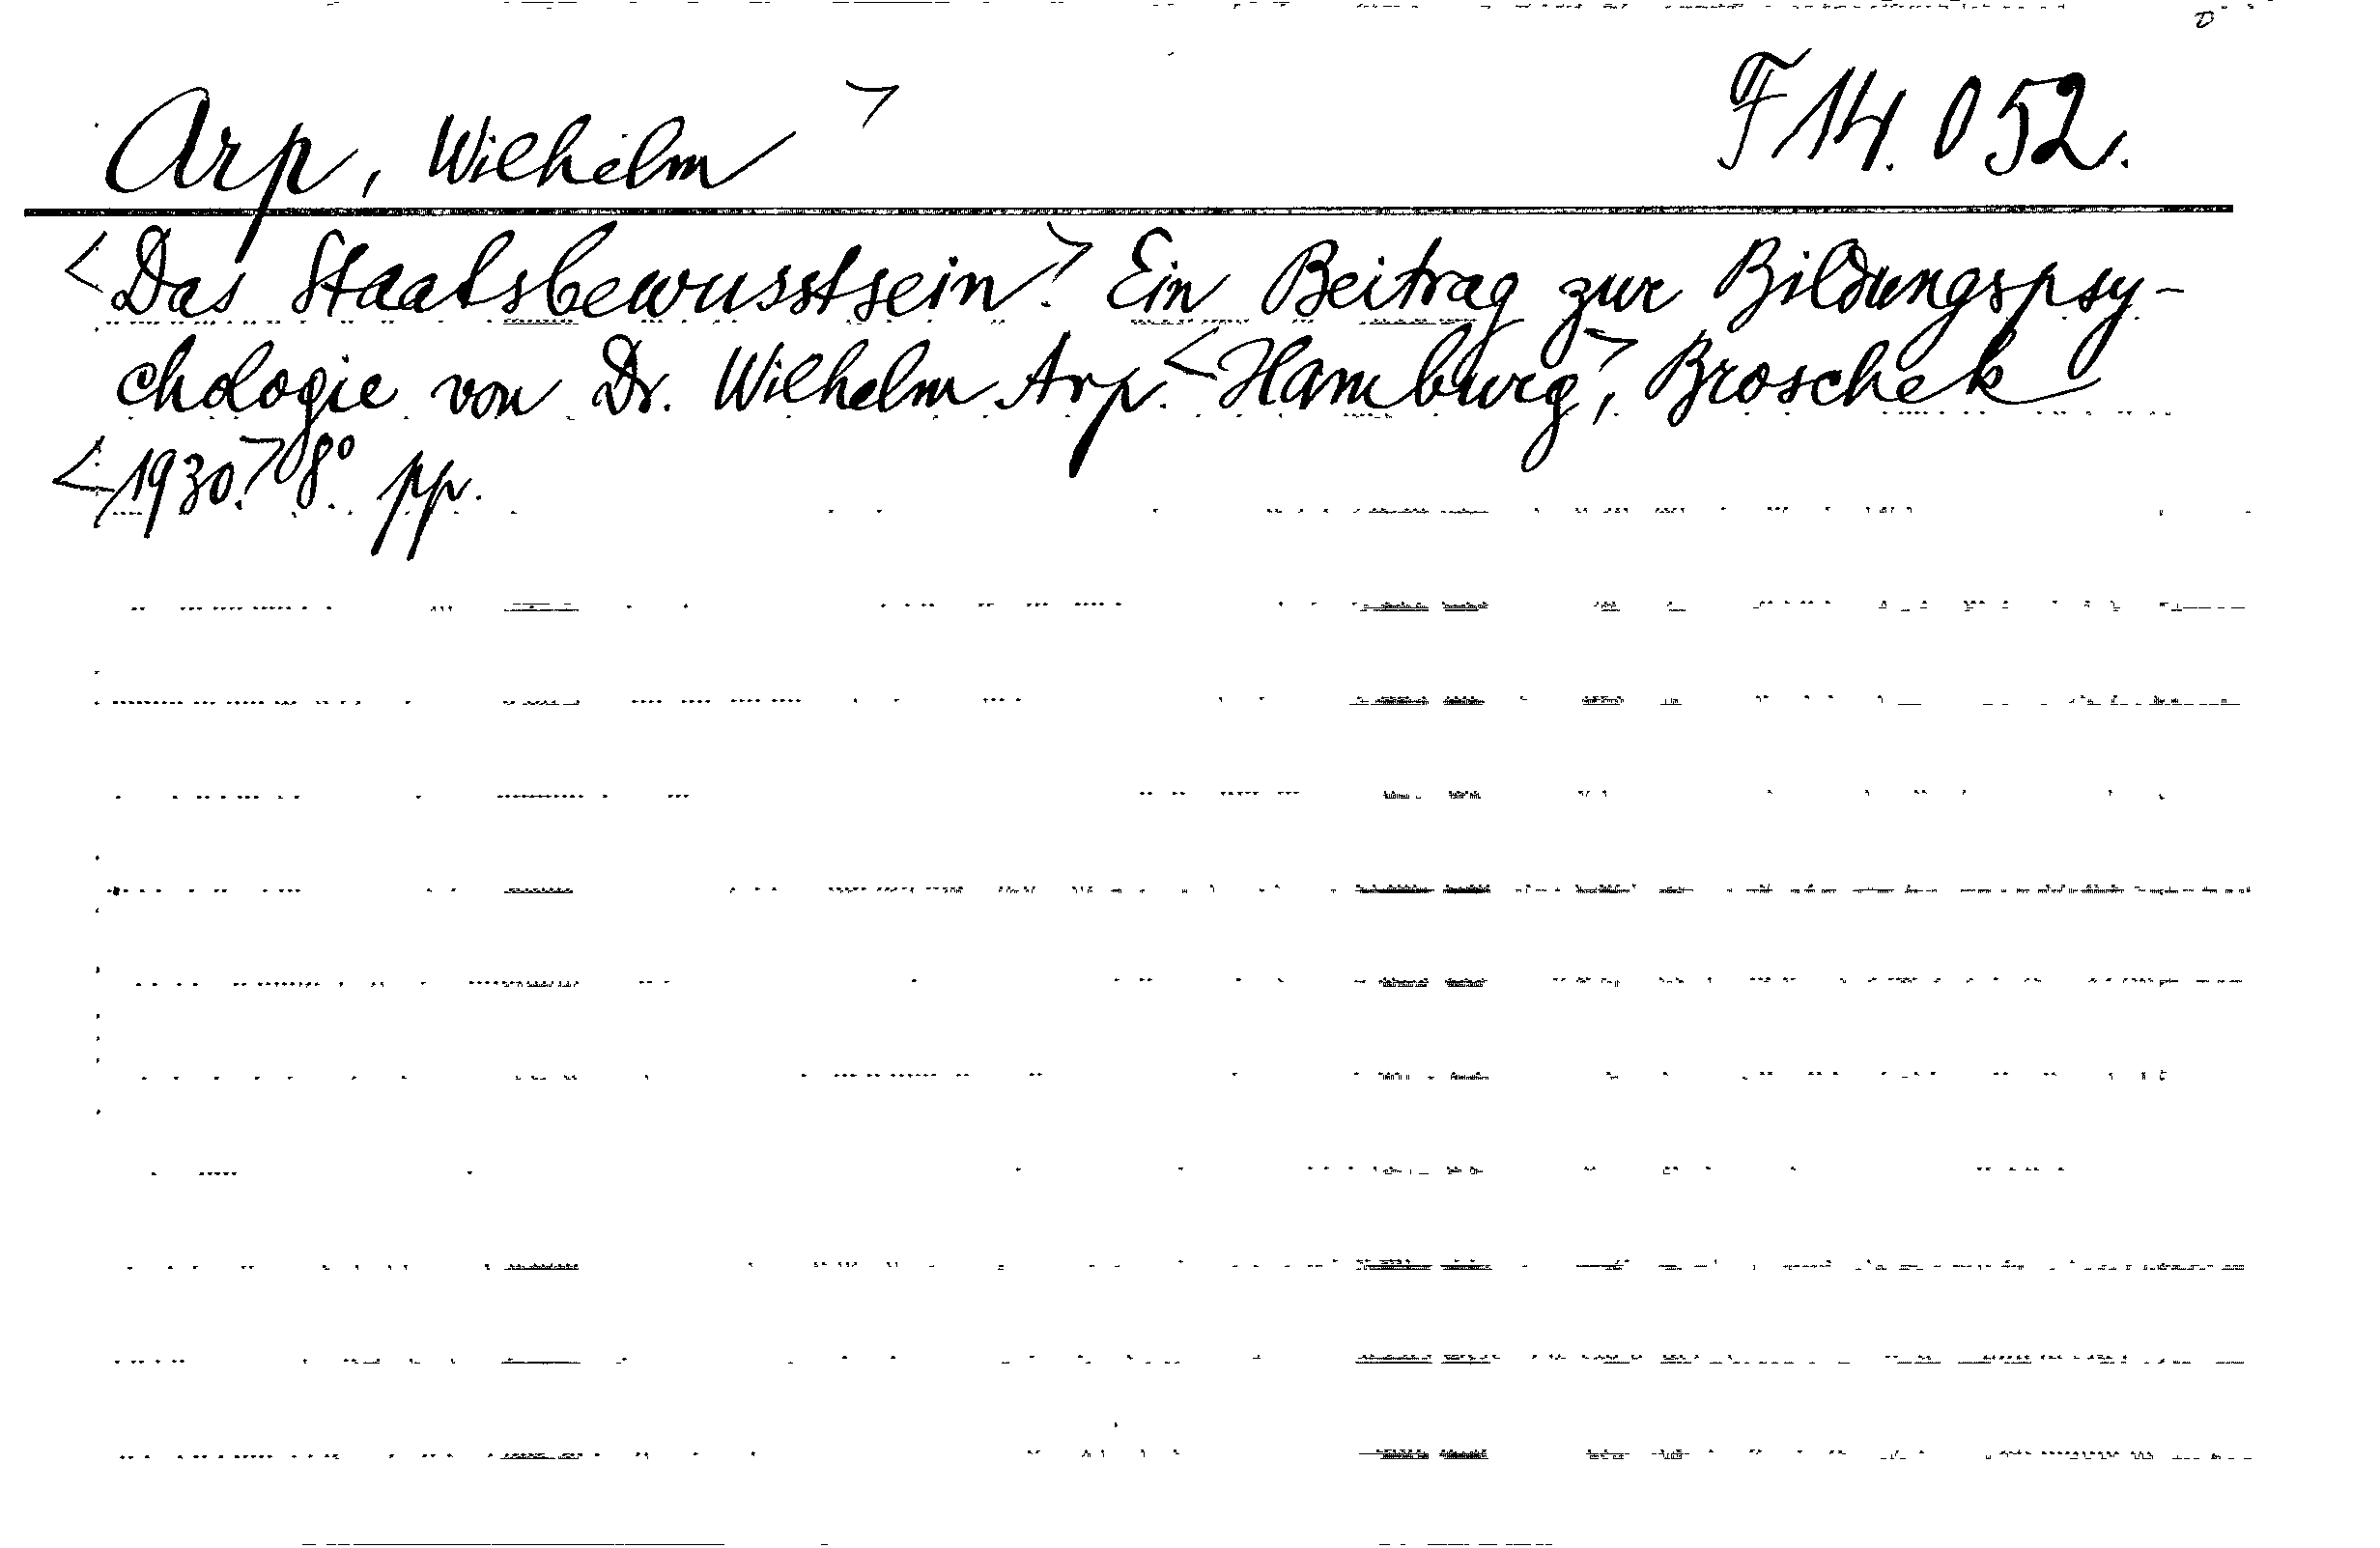 Arp, Wilhelm > F 14.052.
<Das Staatsbewusstsein.> Ein Beitrag zur Bildungspsy-
chologie von Dr. Wilhelm Arp. <Hamburg>, Broschek
<1930.> 8°. pp.